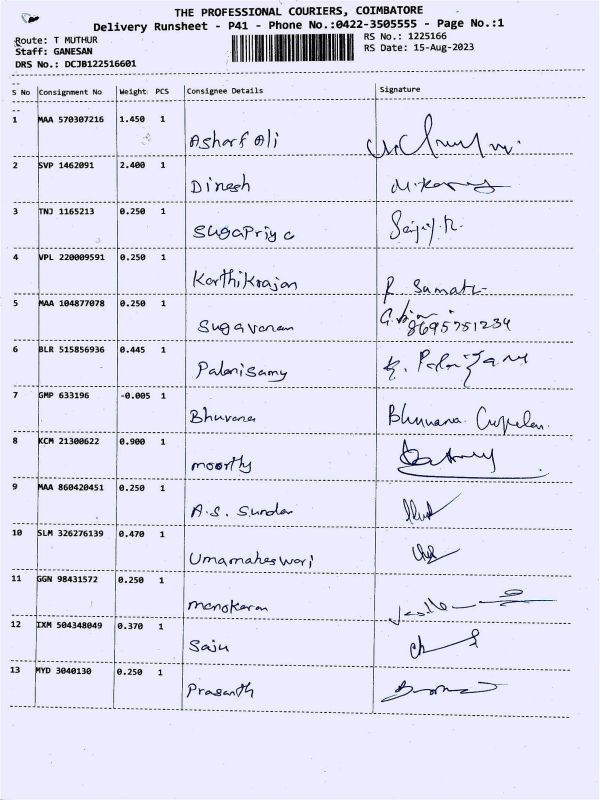 THE PROFESSIONAL COURIERS, COIMBATORE
Delivery Runsheet - P41 - Phone No.:0422-3505555 - Page No.:1
Route: T MUTHUR
RS No.: 1225166
Staff: GANESAN
RS Date: 15-Aug-2023
DRS No.: DCJB122516601
S No Consignment No Weight PCS Consignee Details Signature
1 MAA 570307216 1.450 1
Asharf Ali
2 SVP 1462091 2.400 1
Dinesh
3 TNJ 1165213 0.250 1
Sugapriya
4 VPL 220009591 0.250 1
Karthikrajan R. Sumathi
5 MAA 104877078 0.250 1
Sugavanan 8695751234
6 BLR 515856936 0.445 1
Palanisamy
7 GMP 633196 -0.005 1
Bhuvana Bhuvana
8 KCM 21300622 0.900 1
moorthy
9 MAA 860420451 0.250 1
A.S. Sundar
10 SLM 326276139 0.470 1
Umamaheswari
11 GGN 98431572 0.250 1
manokaran
12 IXM 504348049 0.370 1
Saju
13 MYD 3040130 0.250 1
Prasanth